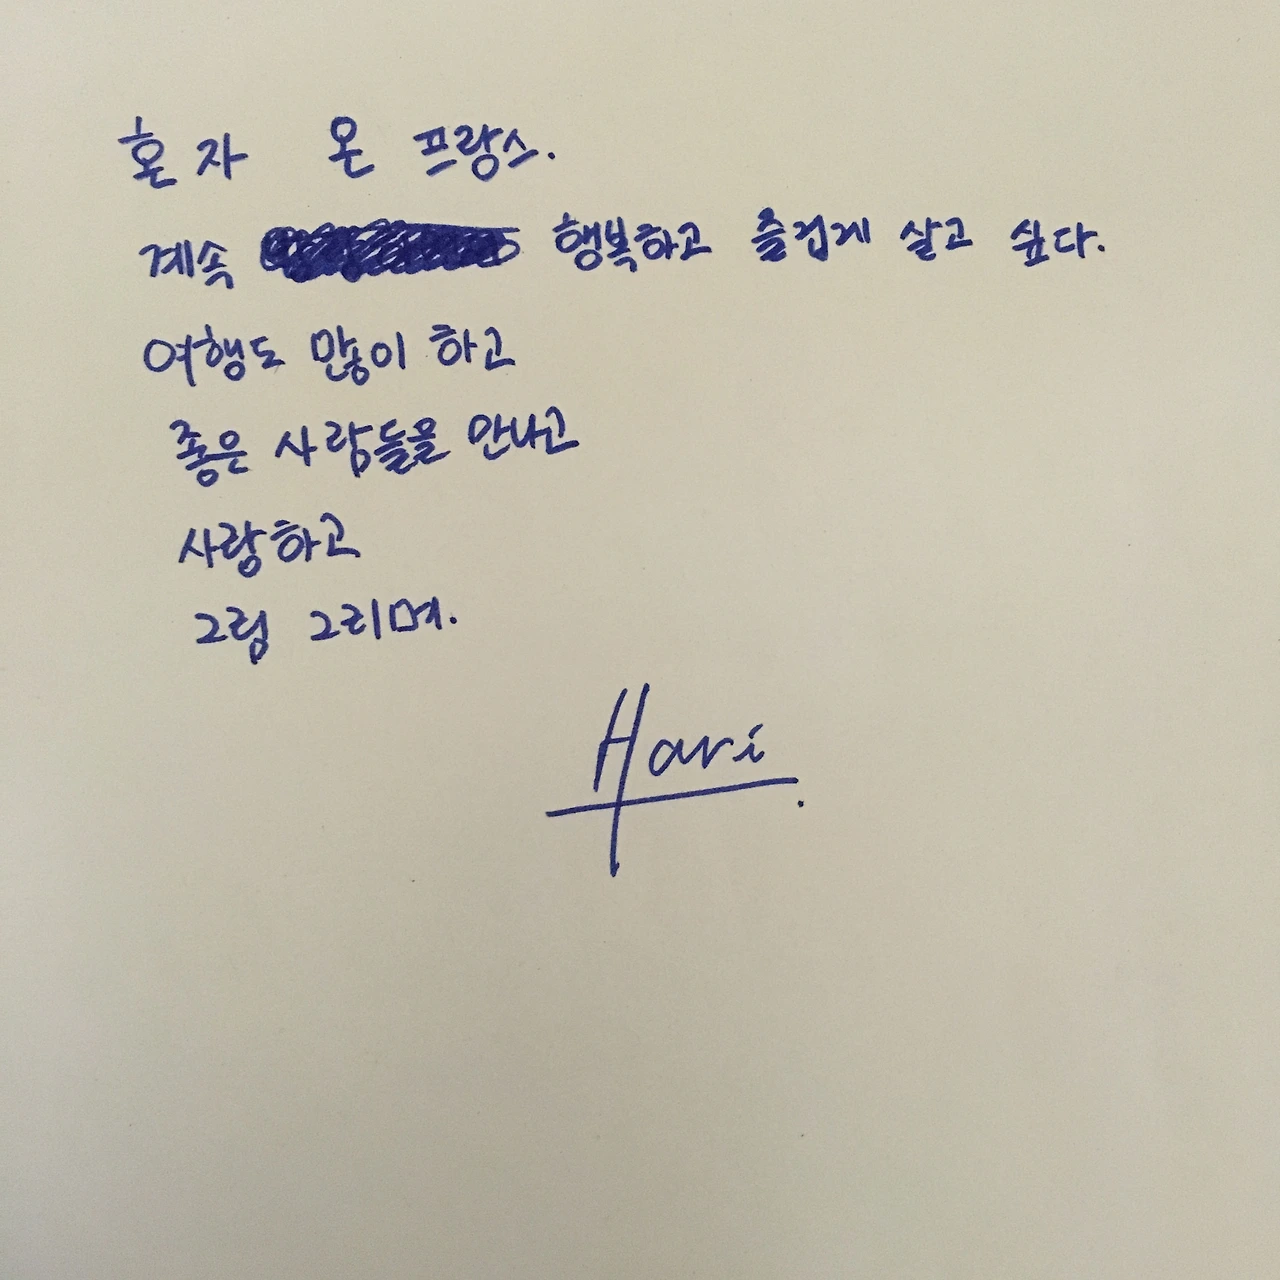 혼자 온 프랑스.
계속 행복하고 즐겁게 살고 싶다.
여행도 많이 하고
좋은 사람들을 만나고
사랑하고
그림 그리며.
Hari